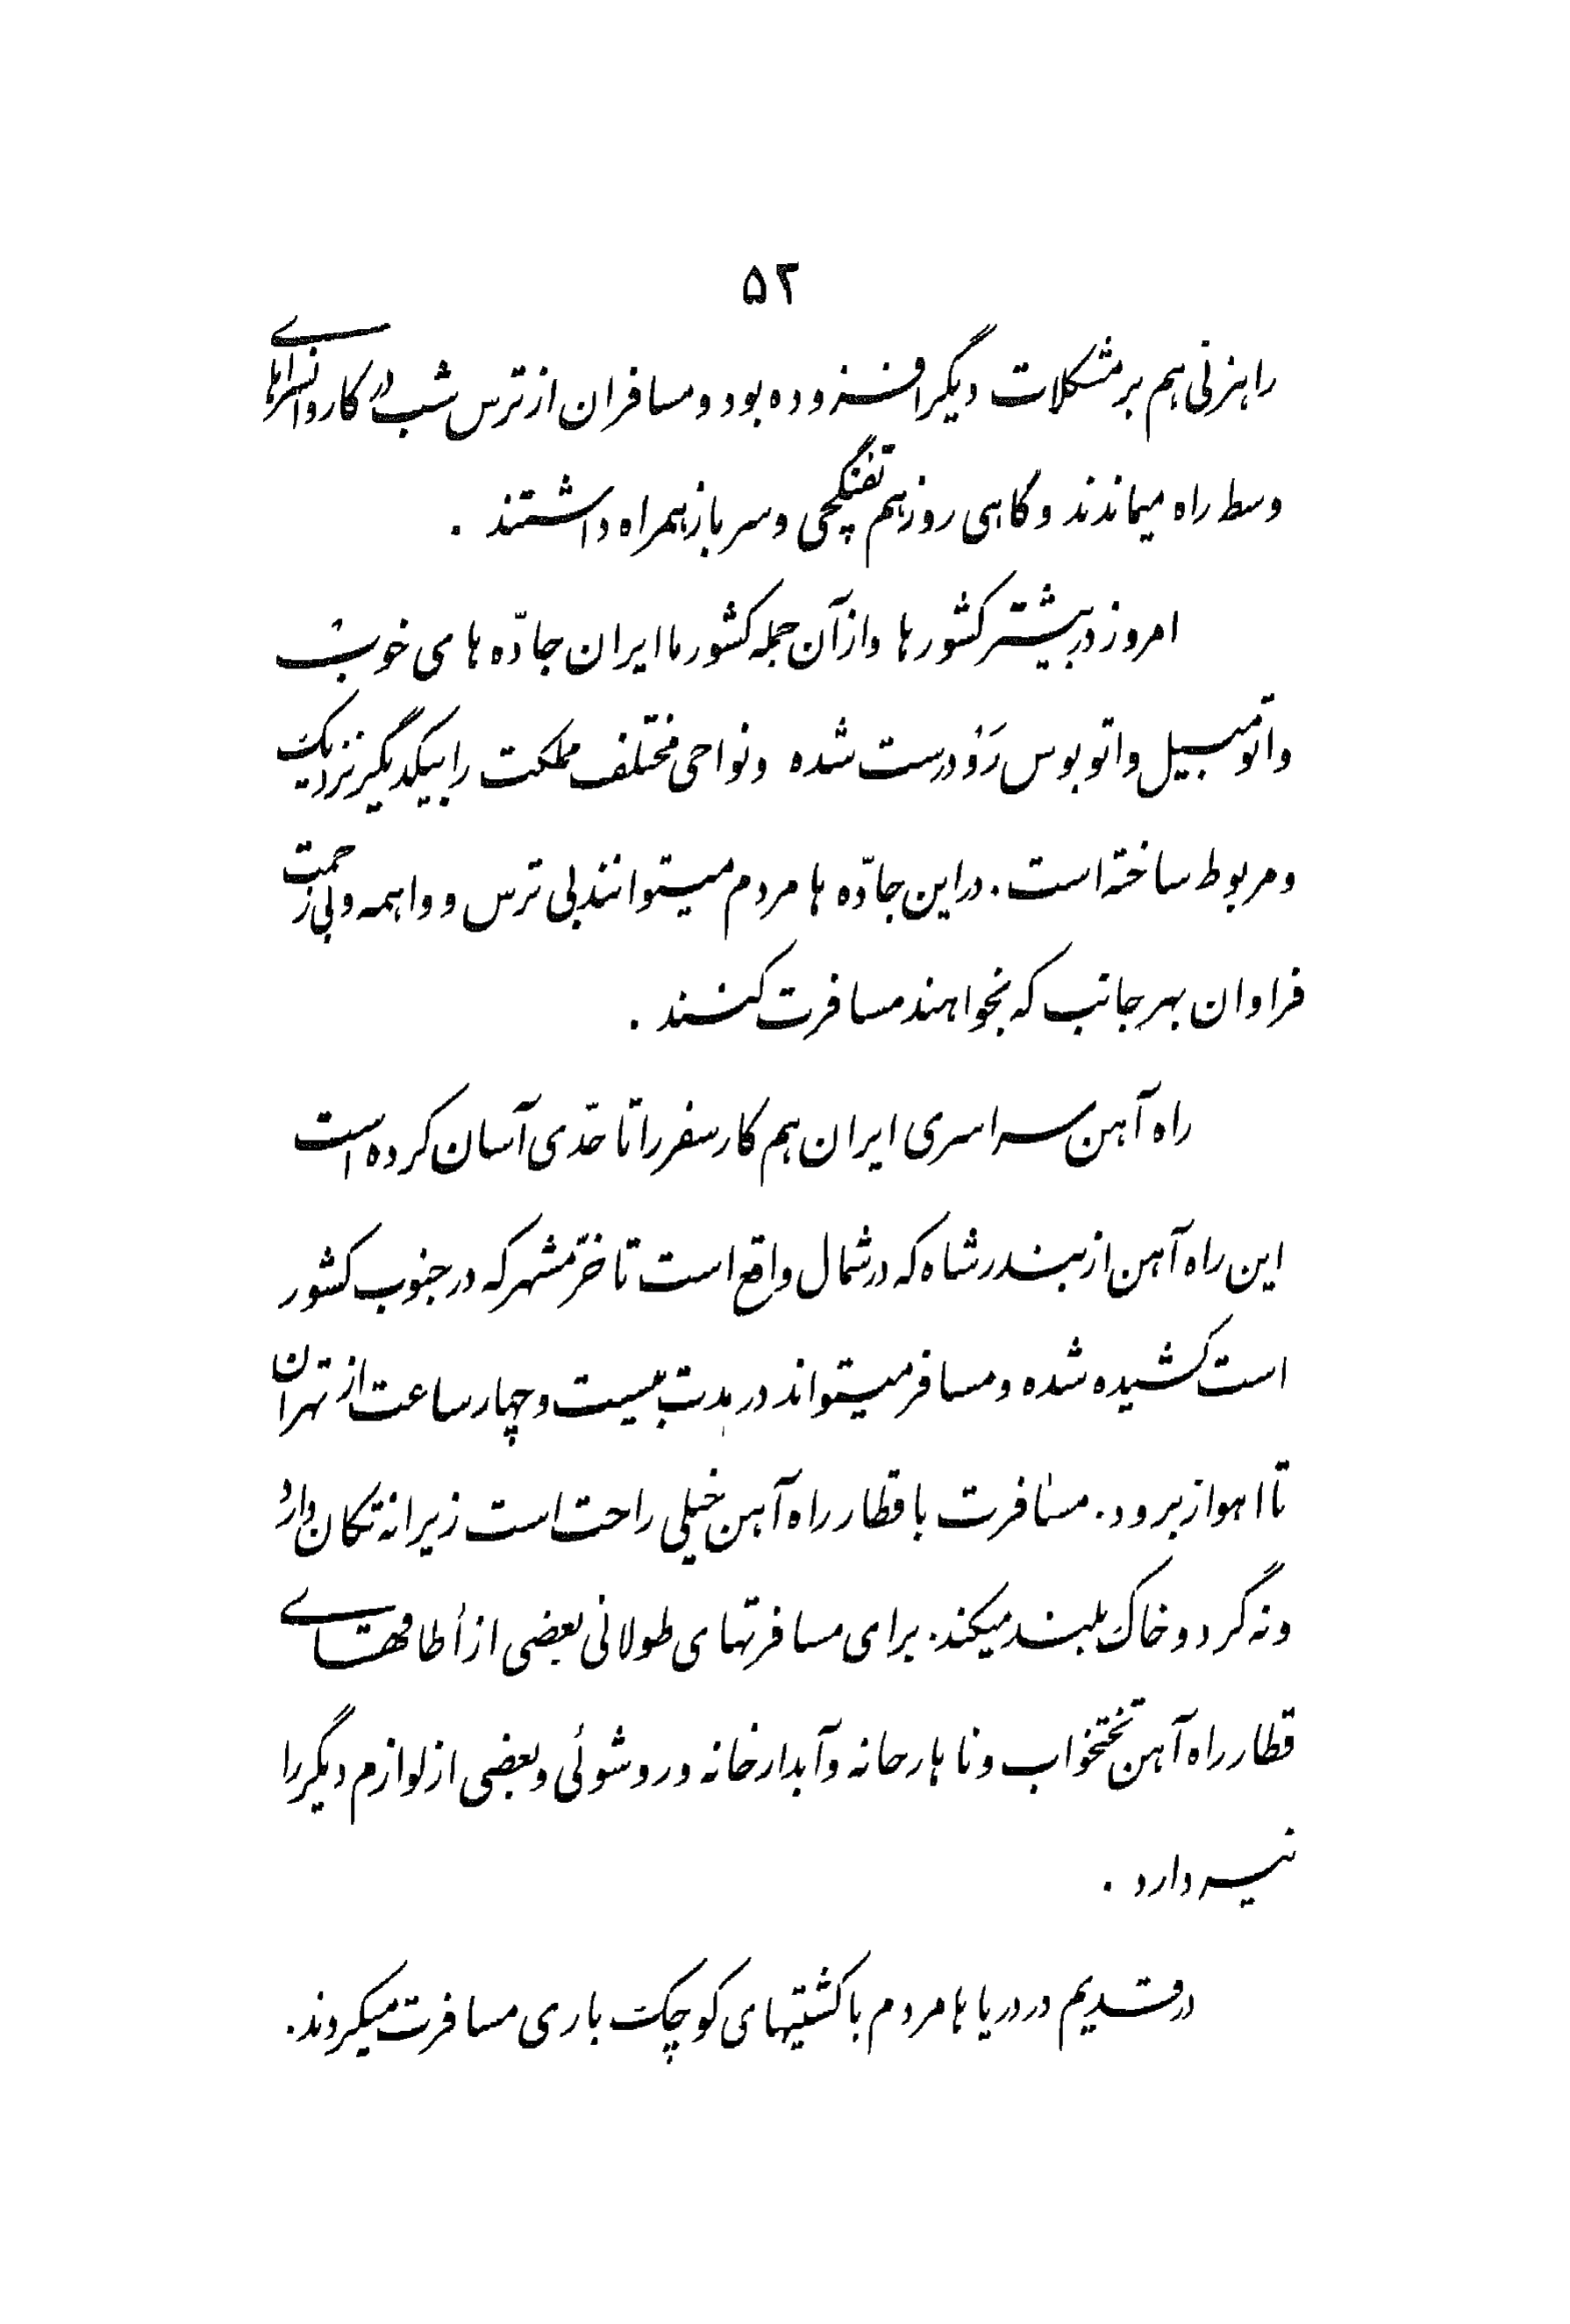 ۵۲
راهزنی هم بر مشکلات دیگر افزوده بود و مسافران از ترس شب در کاروانسراهای
وسط راه میماندند و گاهی روز هم تفنگچی و سرباز همراه داشتند .
امروز در بیشتر کشورها و از آن جمله کشور ما ایران جادّه های خوب
و اتومبیل و اتوبوس رَوْ درست شده و نواحی مختلف مملکت را بیکدیگر نزدیک
و مربوط ساخته است . در این جادّه ها مردم میتوانند بی ترس و واهمه و بی زحمت
فراوان بهر جانب که بخواهند مسافرت کنند .
راه آهن سراسری ایران هم کار سفر را تا حدّی آسان کرده است
این راه آهن از بندر شاه که در شمال واقع است تا خرّمشهر که در جنوب کشور
است کشیده شده و مسافر میتواند در مدت بیست و چهار ساعت از تهران
تا اهواز برود . مسافرت با قطار راه آهن خیلی راحت است زیرا نه تکان دارد
و نه گرد و خاک بلند میکند . برای مسافرتهای طولانی بعضی از أطاقهای
قطار راه آهن تختخواب و ناهارخانه و آبدارخانه و روشوئی و بعضی از لوازم دیگر را
نیز دارد .
در قدیم در دریاها مردم با کشتیهای کوچک باری مسافرت میکردند .